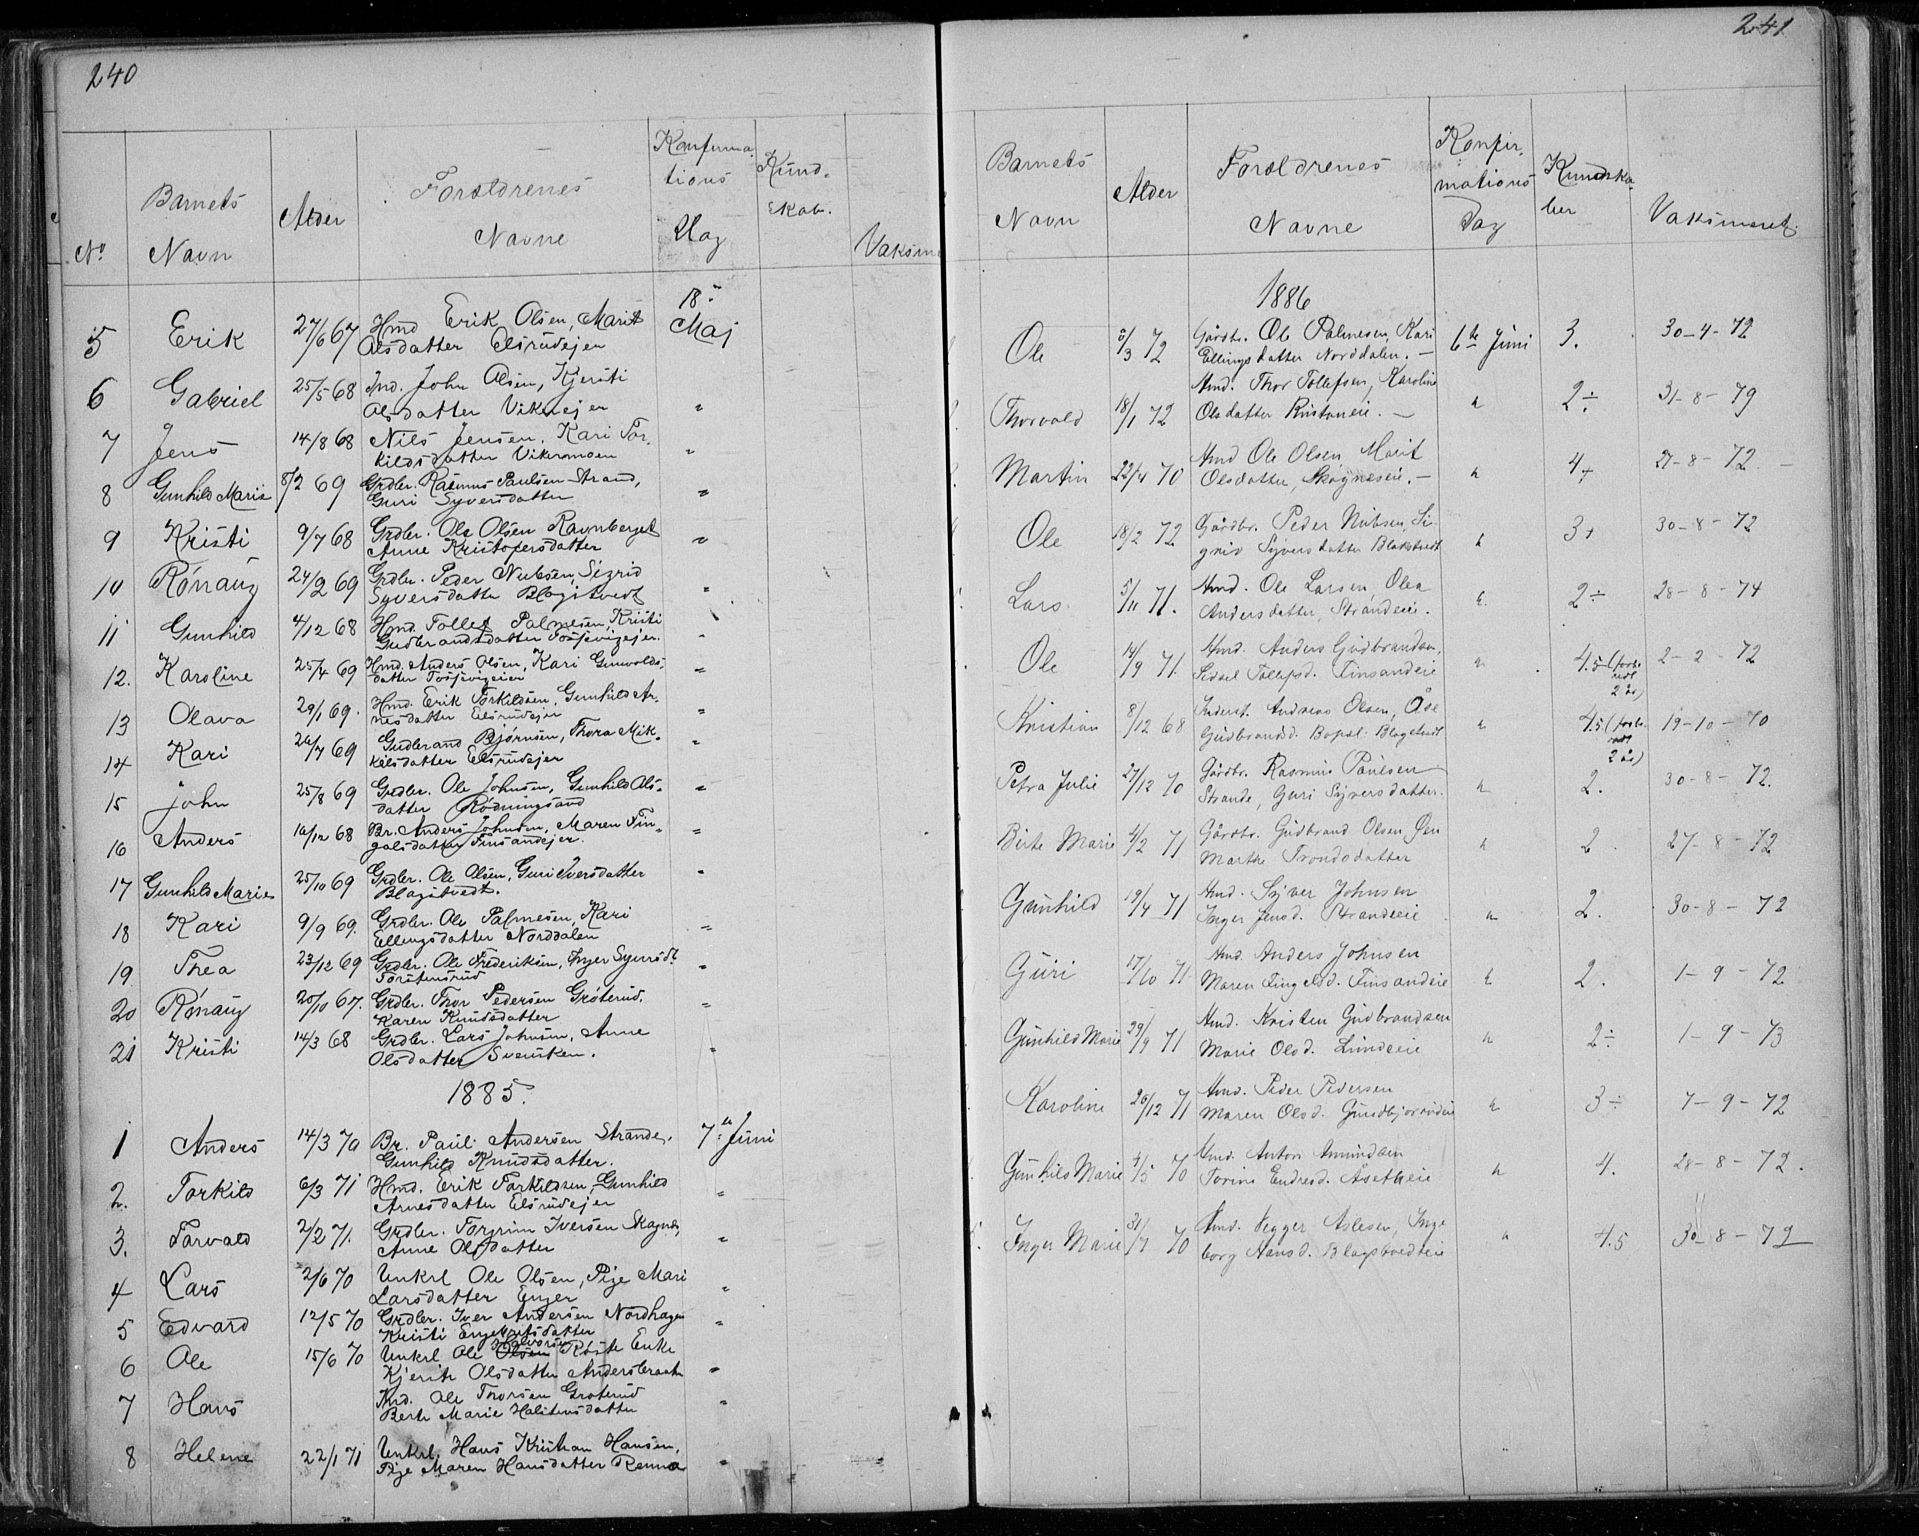 240
No Barnets Navn Alder Forældrenes Navne Konfirma- tions Dag Kund- skab. Vaksine
5 Erik 27/6 67 Hmd Erik Olsen, Marit 18de Maj
Olsdatter Elsrudejer
6 Gabriel 25/5 68 Ind. John Olsen, Kjersti "
Olsdatter Vikenejer
7 Jens 14/8 68 Nils Jensen, Kari Tor- "
kildsdatter Vikermoen
8 Gunhild Marie 8/2 69 Grdbr. Rasmus Paulsen Strand, "
Guri Syversdatter
9 Kristi 9/7 68 Grdbr. Ole Olsen Ravnberget "
Anne Kristofersdatter
10 Rønaug 24/2 69 Grdbr. Peder Nubsen, Sigrid "
Syversdatter Blagstvedt
11 Gunhild 4/12 68 Hmd. Tollef Palmesen, Kristi "
Gudbrandsdatter Tosjevigejer.
12. Karoline 25/4 69 Hmd. Anders Olsen, Kari Gunvolds- "
datter Tosjevigeier
13 Olava 29/1 69. Hmd. Erik Torkildsen, Gunhild Ar- "
nesdatter Elsrudejer
14 Kari 26/7 69 Gudbrand Bjørnsen, Thora Mik- "
kelsdatter Elsrudejer
15 John 25/8 69 Grdbr. Ole Johnsen, Gunhild Ols- "
datter Rødningsand
16 Anders 16/12 68 Br. Anders Johnsen, Maren Fin- "
galsdatter Finsandejer.
17 Gunhild Marie 25/10 69 Grdbr. Ole Olsen, Guri Iversdatter "
Blagstvedt.
18 Kari 9/9 69. Grdbr. Ole Palmesen, Kari "
Ellingsdatter Norddalen
19 Thea 23/12 69 Grdbr. Ole Frederiksen, Inger Syversdt. "
Torstensrud
20 Rønaug 20/10 67. Grdbr. Thor Pedersen Grøterud, "
Karen Knudsdatter
21 Kristi 14/3 68 Grdbr. Lars Johnsen, Anne "
Olsdatter Svensken.
1885.
1 Anders 14/3 70 Br. Paul Andersen Strande, 7de Juni
Gunhild Knudsdatter.
2. Torkild 6/3 71 Hmd. Erik Torkildsen, Gunhild "
Arnesdatter Elsrudejer
3. Torvald 2/2 71. Grdbr. Torgrim Iversen Skagnes, "
Anne Olsdatter
4 Lars 2/6 70 Unkrl Ole Olsen, Pige Mari "
Larsdatter Enger
5 Edvard 12/5 70 Grdbr. Iver Andersen Nordhagen "
Kristi Engebretsdatter
6 Ole 15/6 70 Unkrl Ole Olsen Halvorsen Røste Enke "
Kjersti Olsdatter Andersbraaten
7 Hans Hmd. Ole Thorsen Grøterud "
Berte Marie Halstensdatter
8 Helene 22/1 71 Unkrl. Hans Kristian Hansen, "
Pige Maren Hansdatter Renna
241
Barnets Navn Alder Forældrenes Navne Konfir- mations Dag Kundska- ber Vaksineret.
1886
Ole /3 72 Gårdbr. Ole Palmesen, Kari 6te Juni 3. 30-4-72
Ellingsdatter Norddalen. —
Thorvald 18/1 72 Hmd. Thor Tollefsen, Karoline " 2÷ 31-8-79
Olsdatter —
Martin 22/4 70 Hmd Ole Olsen Marit " 4+ 27-8-72 -
Olsdatter, Skagneseie. —
Ole 18/2 72 Gårdbr. Peder Nubsen, Si- " 3+ 30-8-72
grid Syversdatter Blakstvedt
Lars 5/11 71. Hmd. Ole Larsen, Olea " 2÷ 28-8-74
Andersdatter, Strandeie.
Ole 14/9 71. Hmd. Anders Gudbrandsen, " 4.5 (forbe- redt 2 år) 2-2-72
Sidsel Tollefsd. Finsandeie
Kristian 8/12 68 Inderst. Andreas Olsen, Åse " 4.5 (forbe- redt 2 år) 19-10-70
Gudbrandsd. Bopæl: Blagstvedt
Petra Julie 27/12 70 Gårdbr. Rasmus Paulsen " 2. 30-8-72.
Strande, Guri Syversdatter.
Birte Marie 4/2 71 Gårdbr. Gudbrand Olsen Øen " 2. 27-8-72
Marthe Trondsdatter
Gunhild 19/4 71 Hmd. Syver Johnsen " 2. 30-8-72
Inger Jensd. Strandeie
Guri 17/10 71. Hmd. Anders Johnsen " 2. 1-9-72
Maren Fingelsd. Finsandeie
Gunhild Marie 29/9 71 Hmd. Kristen Gudbrandsen " 2÷ 1-9-73
Marie Olsd. Lundeeie
Karoline 20/12 71 Hmd. Peder Pedersen " 3÷ 7-9-72
Maren Olsd.
Gunhild Marie 4/5 70 Hmd. Anton Amundsen " 4. 28-8-72.
Torine Endresd.
Inger Marie 31/7 70 Hmd. Vegger Aslesen, Inge- " 4.5 30-8-72
borg Hansd. Blagstvedteie